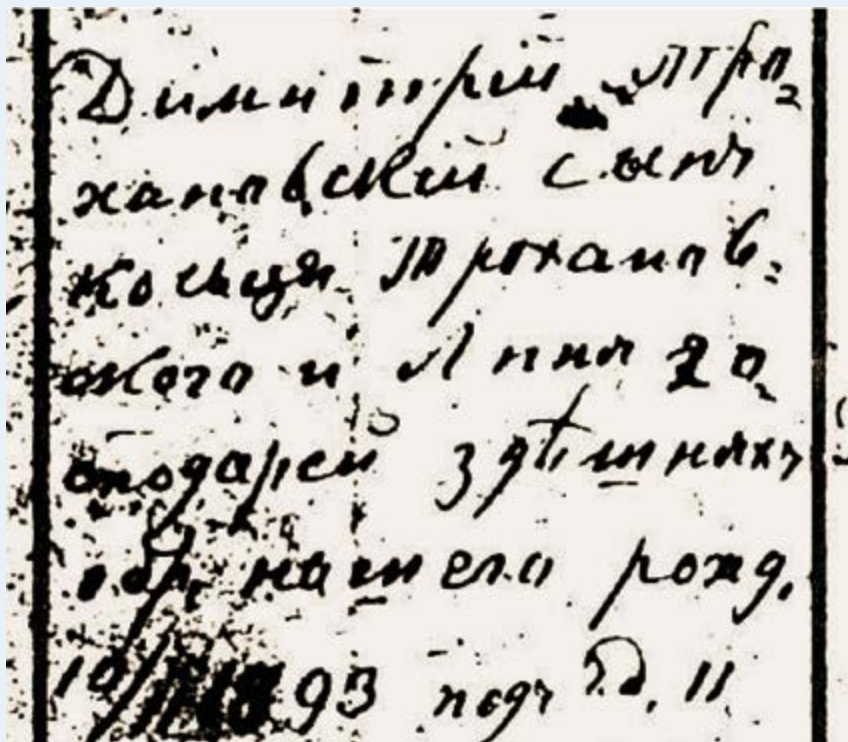 Димитрій Тро-
хановскій сынъ
Трохановс-
кого и Анны го-
сподарей здѣшнихъ
обр. нашего рожд.
93 подъ чд. 11